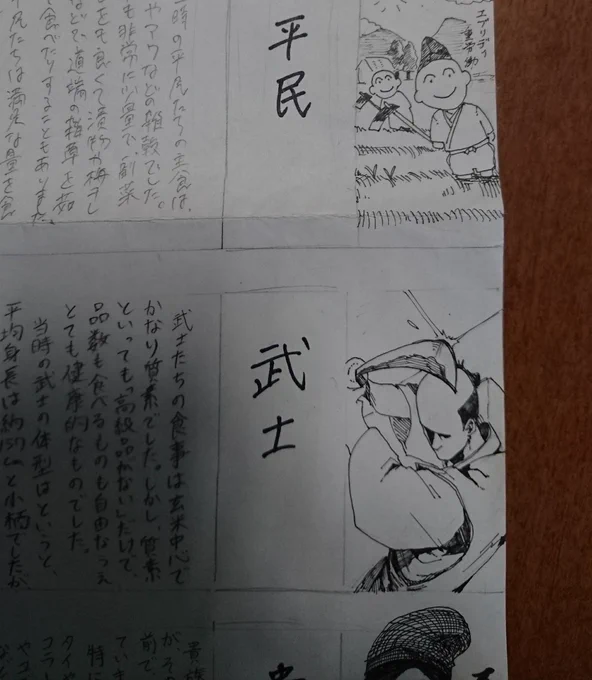 エブリデイ
重労働
平民
時の平民たちの主食は、
やアワなどの雑穀でした。
も非常に少量で、副菜
も良くて漬物か梅干し
などで、道端の雑草を茹
食べたりすることもありました
平民たちは満足な量を食
武士
武士たちの食事は玄米中心で
かなり質素でした。しかし、質素
といっても「高級品がない」だけで、
品数も食べるものも自由なうえ
とても健康的なものでした。
当時の武士の体型はというと、
平均身長は約
と小柄でしたが
貴族
が、その
前で、
ていき
特に
タイや
コラー